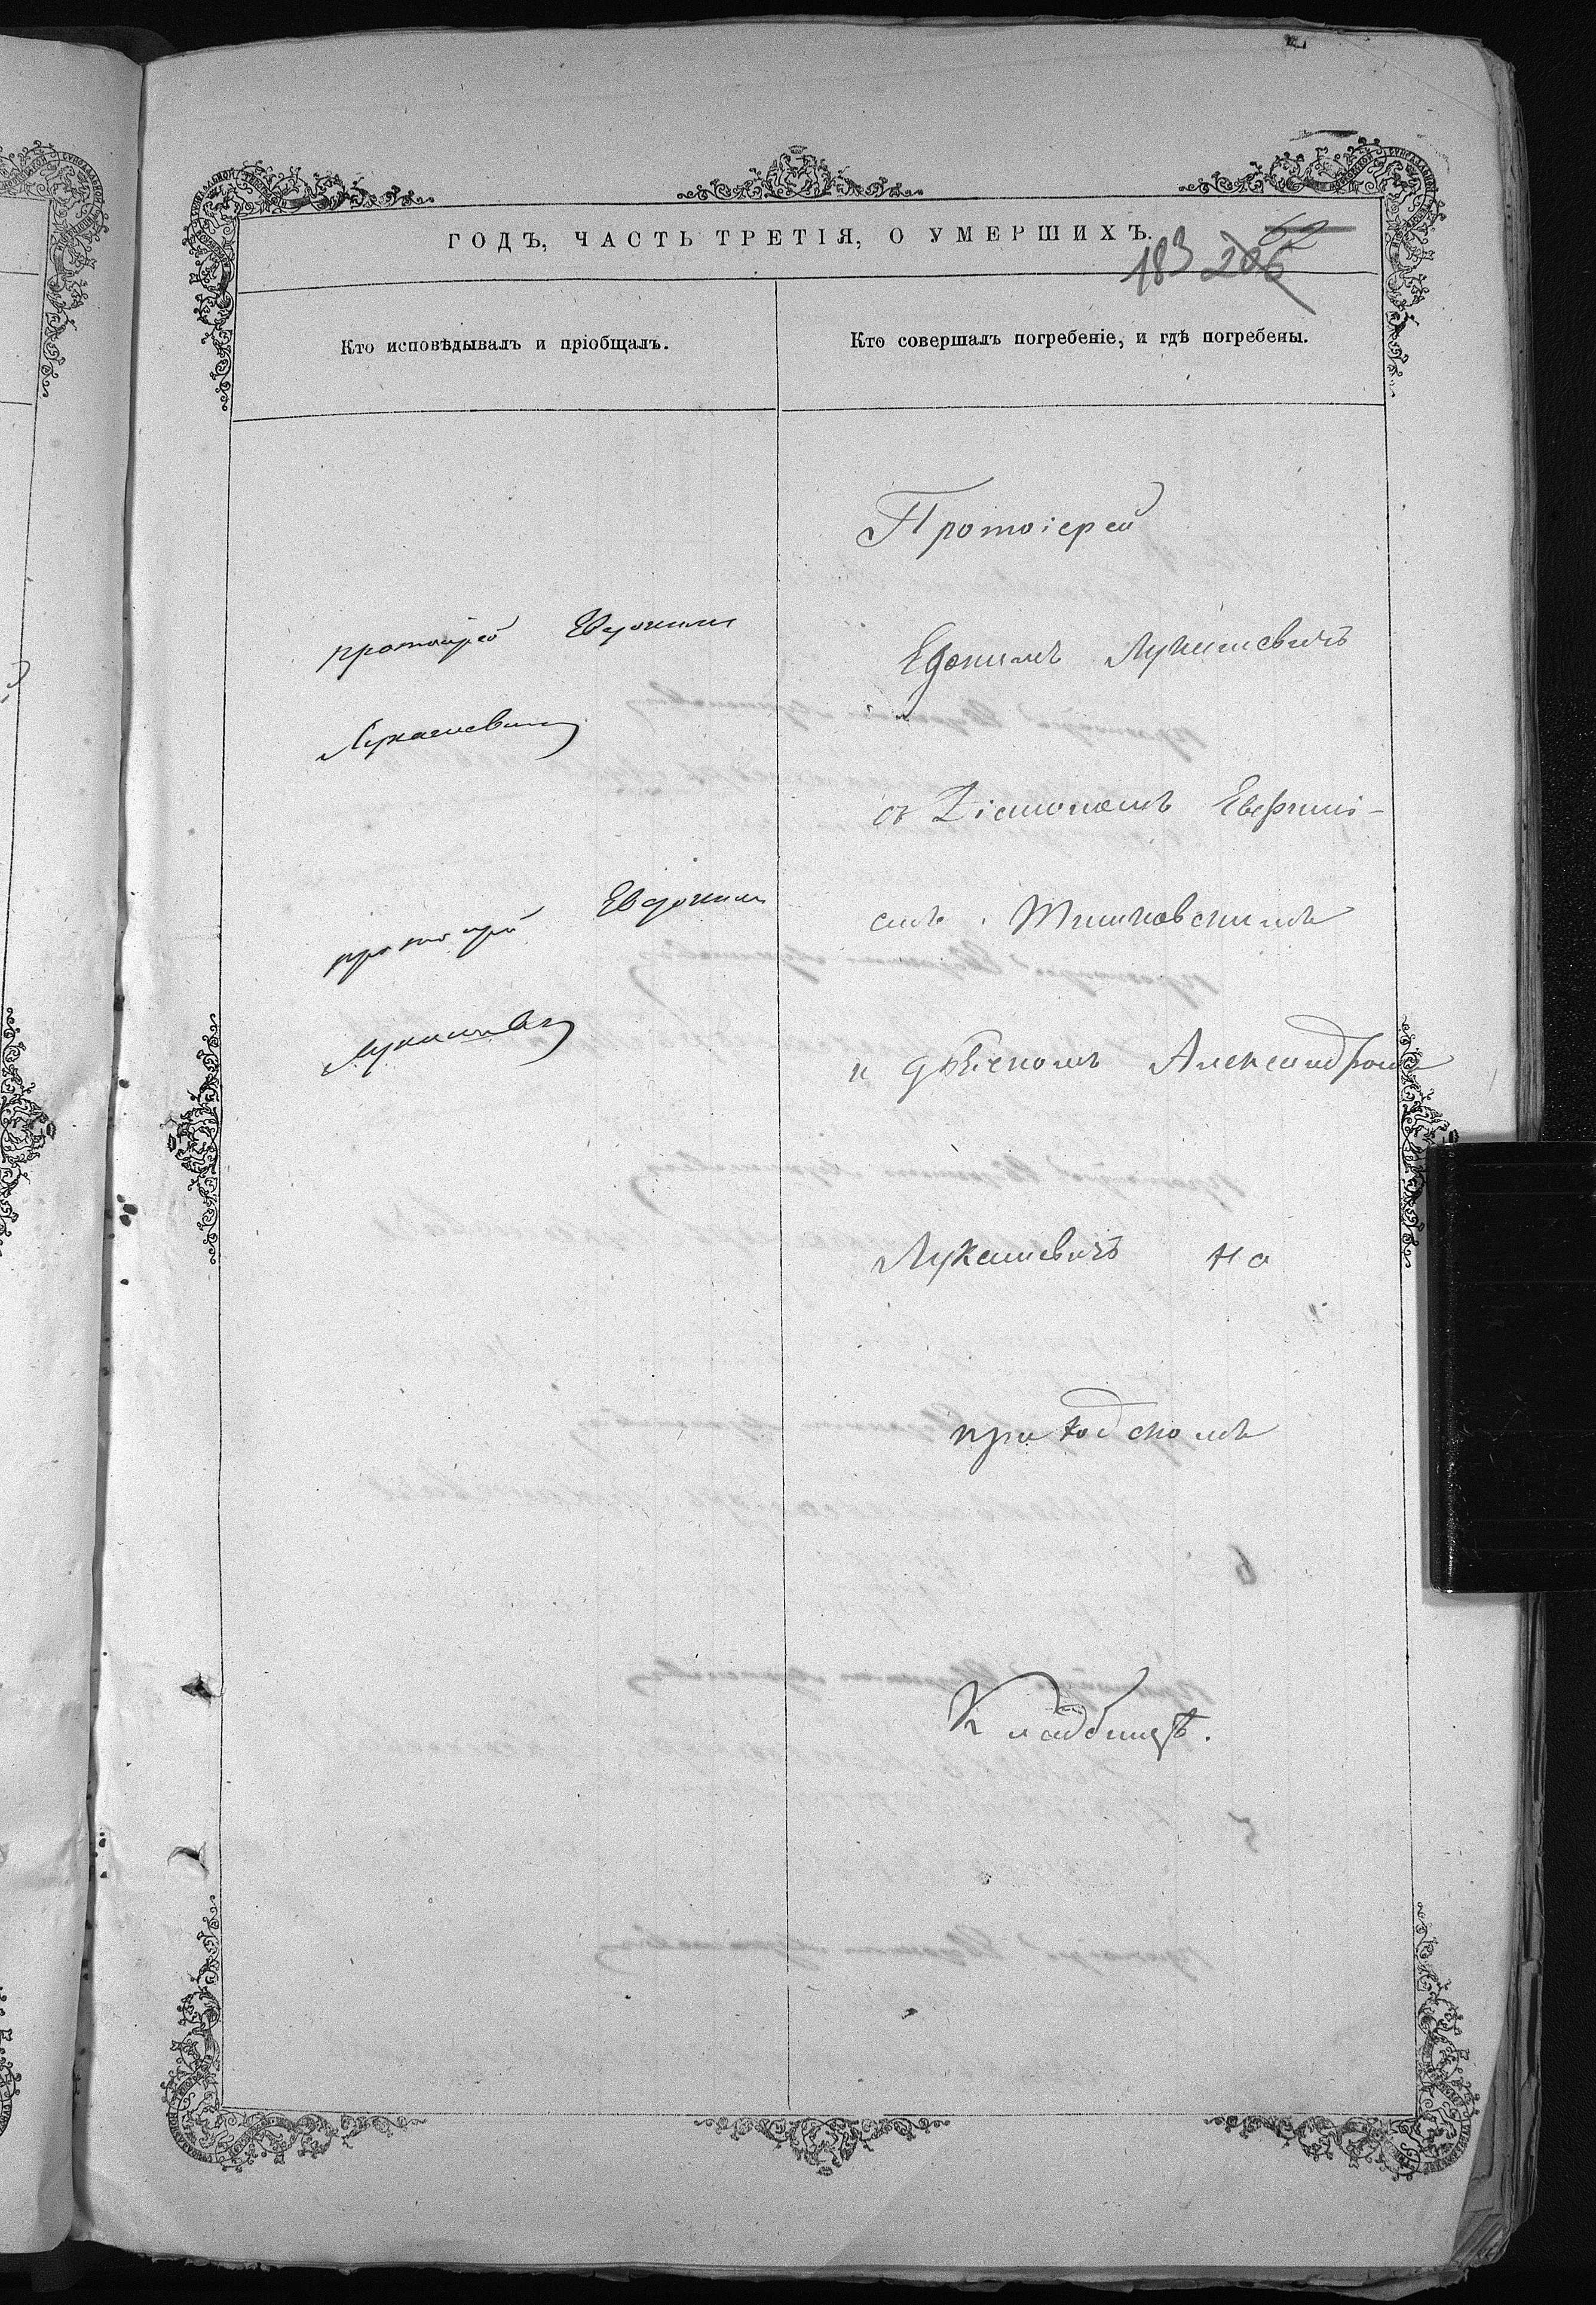 ГОДЪ, ЧАСТЬ ТРЕТІЯ, О УМЕРШИХЪ.
62
183 206
Кто исповѣдывалъ и пріобщалъ.
Кто совершалъ погребеніе, и гдѣ погребены.
протоіерей Евдокимъ
Лукашевичъ
протоіерей Евдокимъ
Лукашевичъ
Протоіерей
Едокимъ Лукашевичъ
съ Діакономъ Евфимі-
емъ
и Александромъ
Лукашевичъ на
приходскомъ
Кладбищѣ.